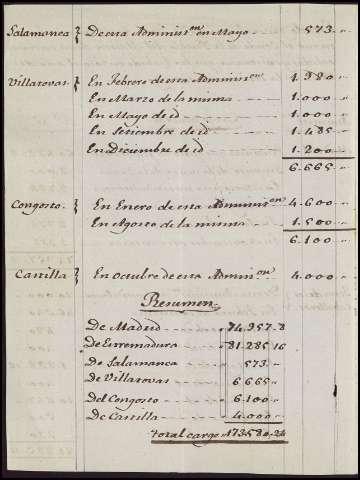 Salamanca } De esta Administ.on en Mayo 573. "
Villatovas. } En Febrero de esta Adminis.on 1.980 "
En Marzo de la misma 1.000 "
En Mayo de id 1.000 "
En Setiembre de id 1.485 "
En Diciembre de id 1.200 "
6.665 "
Congosto. } En Enero de esta Adminis.on 4.600 "
En Agosto de la misma 1.500 "
6.100 "
Castilla } En Octubre de esta Admin.on 4.000 "
Resumen
De Madrid 74.957.8
De Estremadura 81.285 16
De Salamanca 573 "
De Villatovas 6.665 "
Del Congosto 6.100 "
De Castilla 4.000 "
Total cargo 173.580.24